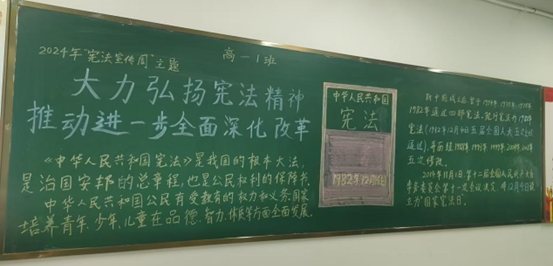 2024年"宪法宣传周"主题
高一1班
大力弘扬宪法精神
推动进一步全面深化改革
《中华人民共和国宪法》是我国的根本大法,
是治国安邦的总章程,也是公民权利的保障书。
中华人民共和国公民有受教育的权力和义务,国家
培养青年、少年、儿童在品德、智力、体质等方面全面发展。
中华人民共和国
宪法
1982年12月4日
新中国成立后,曾于1954年、1975年、1978年、
1982年通过四部宪法,现行宪法为1982年
宪法(1982年12月4日五届全国人大五次会议
通过),并历经1988年、1993年、1999年、2004年、2018年
五次修改。
2014年11月1日,第十二届全国人民代表大会
常务委员会第十一次会议决定,将12月4日设
立为"国家宪法日"。